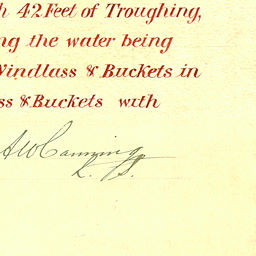 h 42 Feet of Troughing,
ng the water being
Windlass & Buckets in
ss & Buckets with
A W Canning
L. S.